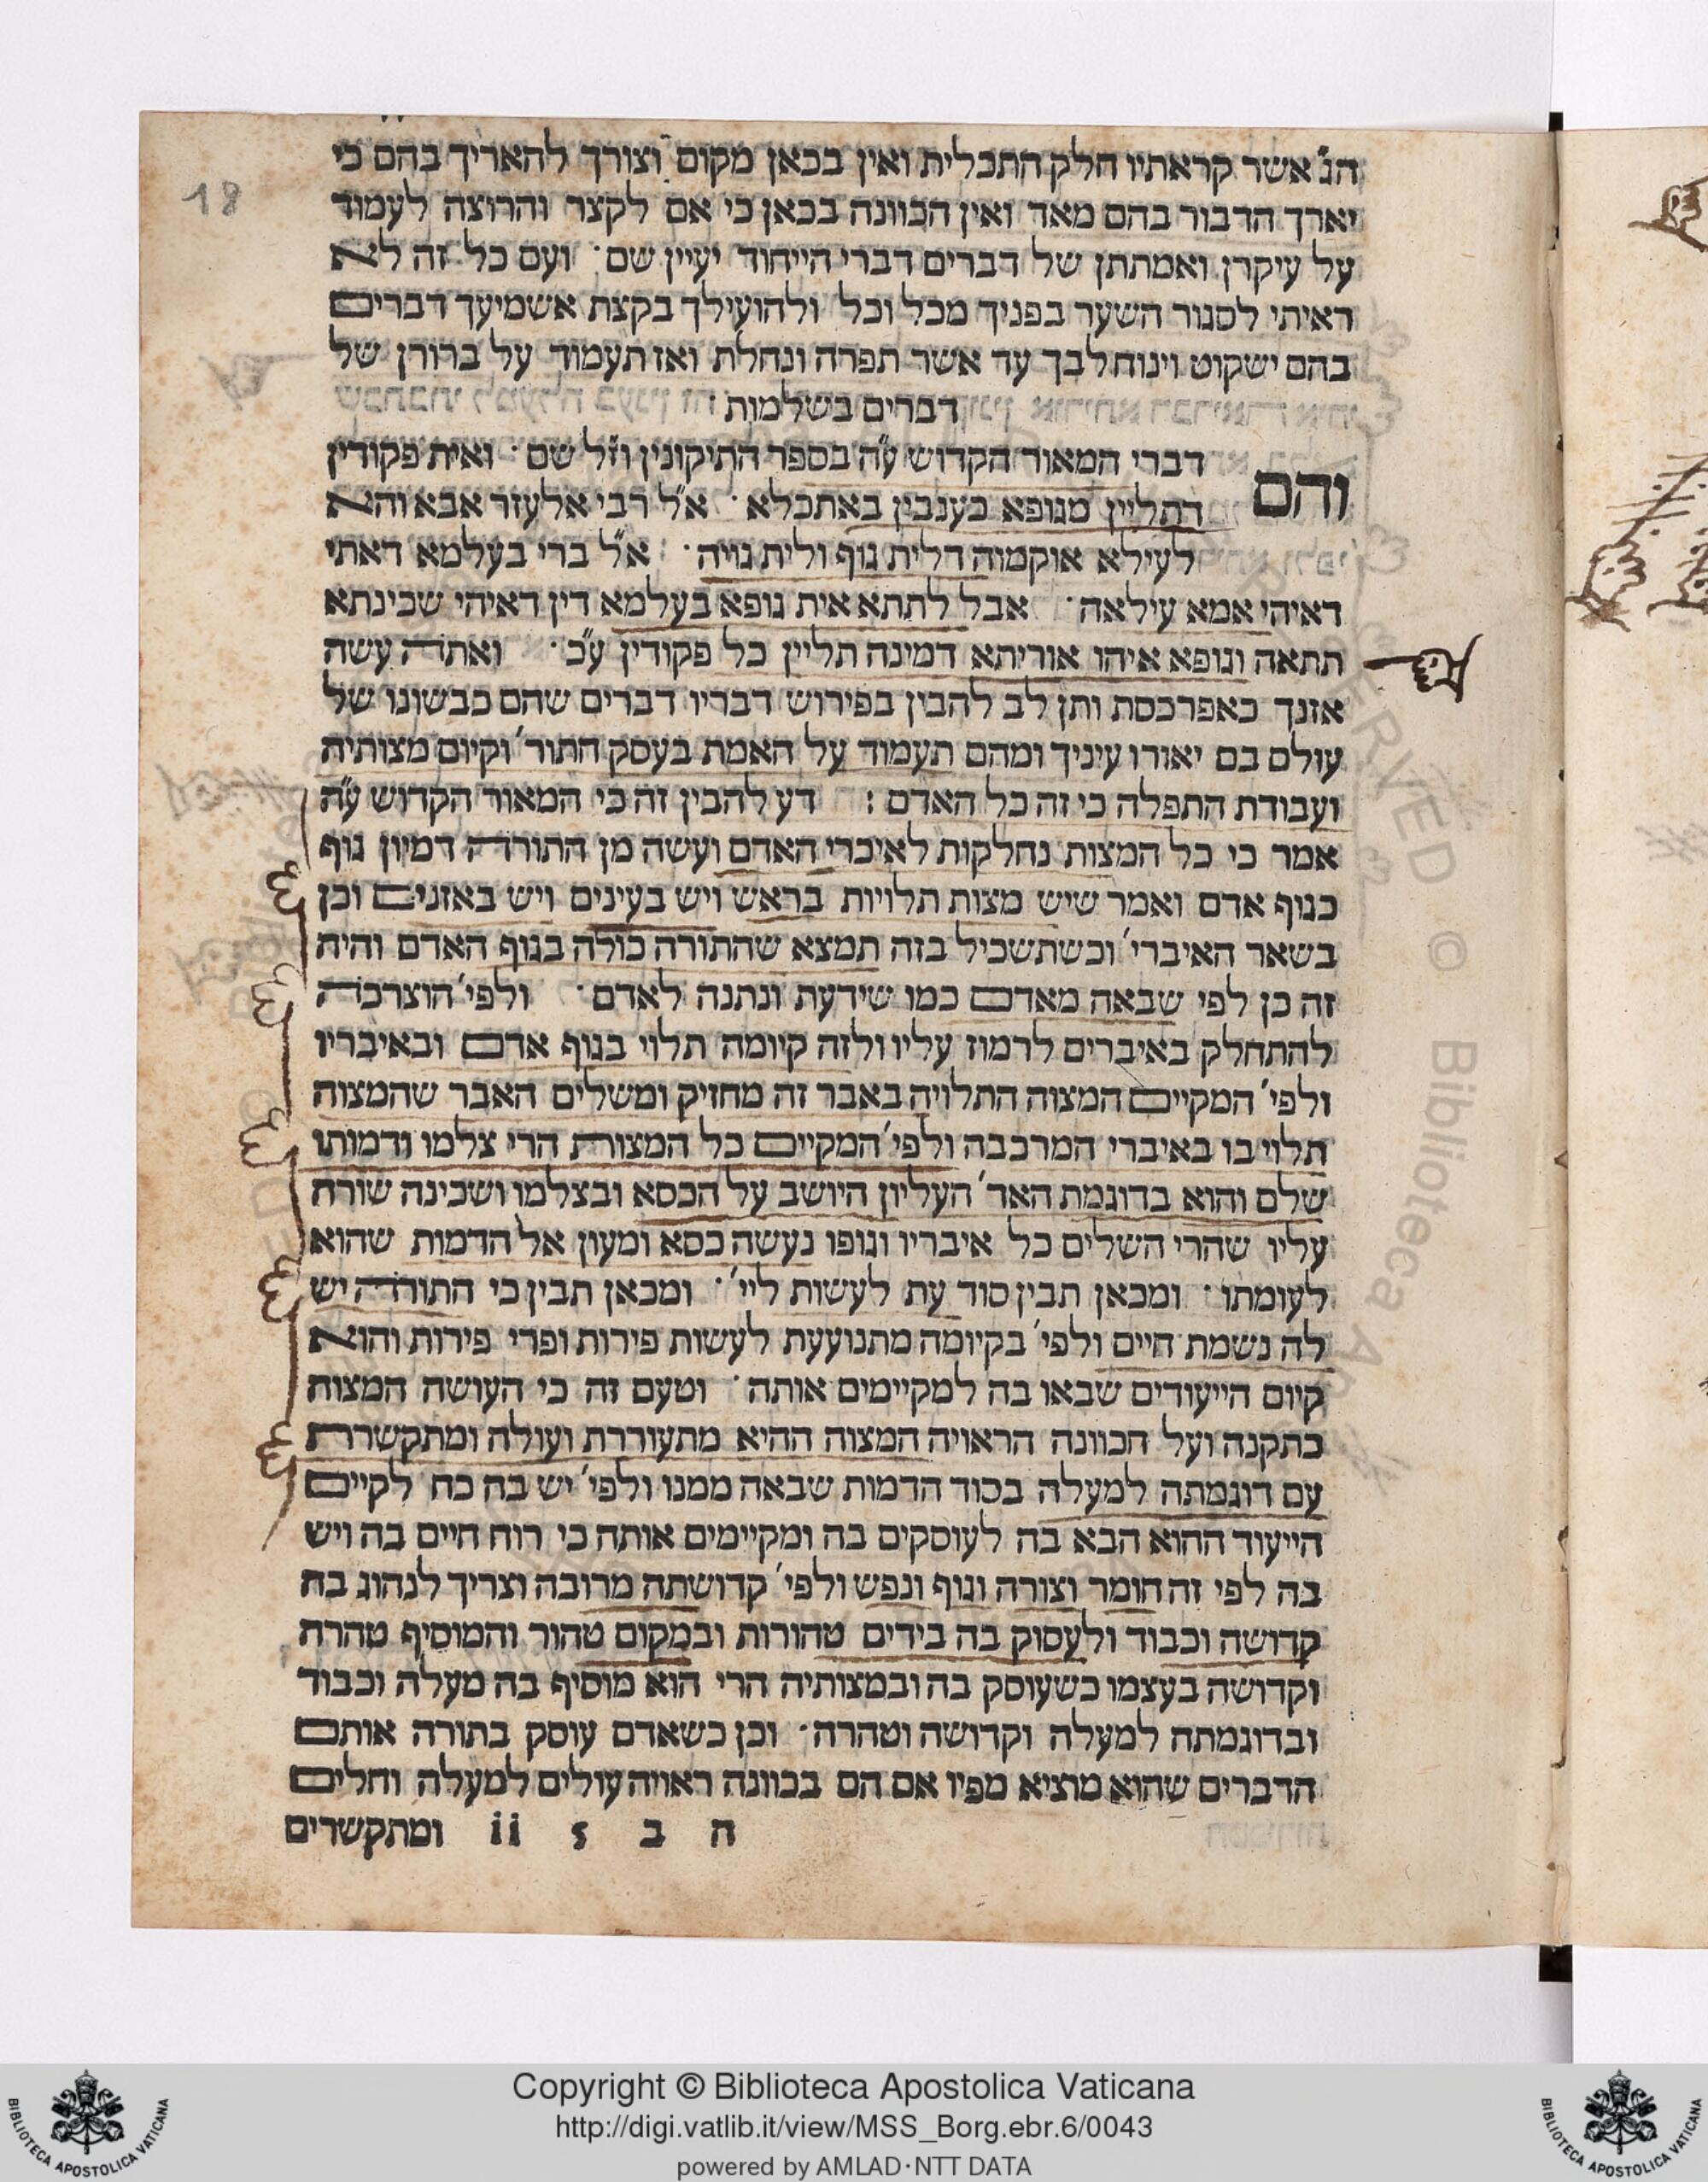 18
הג" אשר קראתיו חלק התכלית ואין בכאן מקום וצורך להאריך בהם כי
יארך הדבור בהם מאד ואין הכוונה בכאן כי אם לקצר והרוצה לעמוד
על עיקרן ואמתתן של דברים דברי הייחוד יעיין שם · ועם כל זה לא
ראיתי לסגור השער בפניך מכל וכל ולהועילך בקצת אשמיעך דברים
בהם ישקוט וינוח לבך עד אשר תפרה ונחלת ואז תעמוד על ברורן של
דברים בשלמות ·
והם דברי המאור הקדוש ע"ה בספר התיקונין וז"ל שם · ואית פקודין
דתליין מגופא כענבין באתכלא · א"ל רבי אלעזר אבא והא
לעילא אוקמוה דלית גוף ולית גויה · א"ל ברי בעלמא דאתי
דאיהי אמא עילאה · אבל לתתא אית גופא בעלמא דין דאיהי שכינתא
תתאה וגופא איהו אוריתא דמינה תליין כל פקודין ע"כ · ואתה עשה
אזנך כאפרכסת ותן לב להבין בפירוש דבריו דברים שהם כבשונו של
עולם בם יאורו עיניך ומהם תעמוד על האמת בעסק התור' וקיום מצותיה
ועבודת התפלה כי זה כל האדם : דע להבין זה כי המאור הקדוש ע"ה
אמר כי כל המצות נחלקות לאיברי האדם ועשה מן התורה דמיון גוף
כגוף אדם ואמר שיש מצות תלויות בראש ויש בעינים ויש באזנים וכן
בשאר האיברי' וכשתשכיל בזה תמצא שהתורה כולה בגוף האדם והיה
זה כן לפי שבאה מאדם כמו שידעת ונתנה לאדם · ולפי' הוצרכה
להתחלק באיברים לרמוז עליו ולזה קיומה תלוי בגוף אדם ובאיבריו
ולפי' המקיים המצוה התלויה באבר זה מחזיק ומשלים האבר שהמצוה
תלוי בו באיברי המרכבה ולפי' המקיים כל המצות הרי צלמו ודמותו
שלם והוא בדוגמת האד' העליון היושב על הכסא ובצלמו ושכינה שורה
עליו שהרי השלים כל איבריו וגופו נעשה כסא ומעון אל הדמות שהוא
לעומתו · ומכאן תבין סוד עת לעשות ליי' · ומכאן תבין כי התורה יש
לה נשמת חיים ולפי' בקיומה מתנועעת לעשות פירות ופרי פירות והוא
קיום הייעודים שבאו בה למקיימים אותה · וטעם זה כי העושה המצוה
כתקנה ועל הכוונה הראויה המצוה ההיא מתעוררת ועולה ומתקשרת
עם דוגמתה למעלה בסוד הדמות שבאה ממנו ולפי' יש בה כח לקיים
הייעוד ההוא הבא בה לעוסקים בה ומקיימים אותה כי רוח חיים בה ויש
בה לפי זה חומר וצורה וגוף ונפש ולפי' קדושתה מרובה וצריך לנהוג בה
קדושה וכבוד ולעסוק בה בידים טהורות ובמקום טהור והמוסיף טהרה
וקדושה בעצמו כשעוסק בה ובמצותיה הרי הוא מוסיף בה מעלה וכבוד
ובדוגמתה למעלה וקדושה וטהרה · וכן כשאדם עוסק בתורה אותם
הדברים שהוא מוציא מפיו אם הם בכוונה ראויה עולים למעלה וחלים
ה ב s ii ומתקשרים
Copyright © Biblioteca Apostolica Vaticana
http://digi.vatlib.it/view/MSS_Borg.ebr.6/0043
powered by AMLAD·NTT DATA
BIBLIOTECA APOSTOLICA VATICANA
BIBLIOTECA APOSTOLICA VATICANA